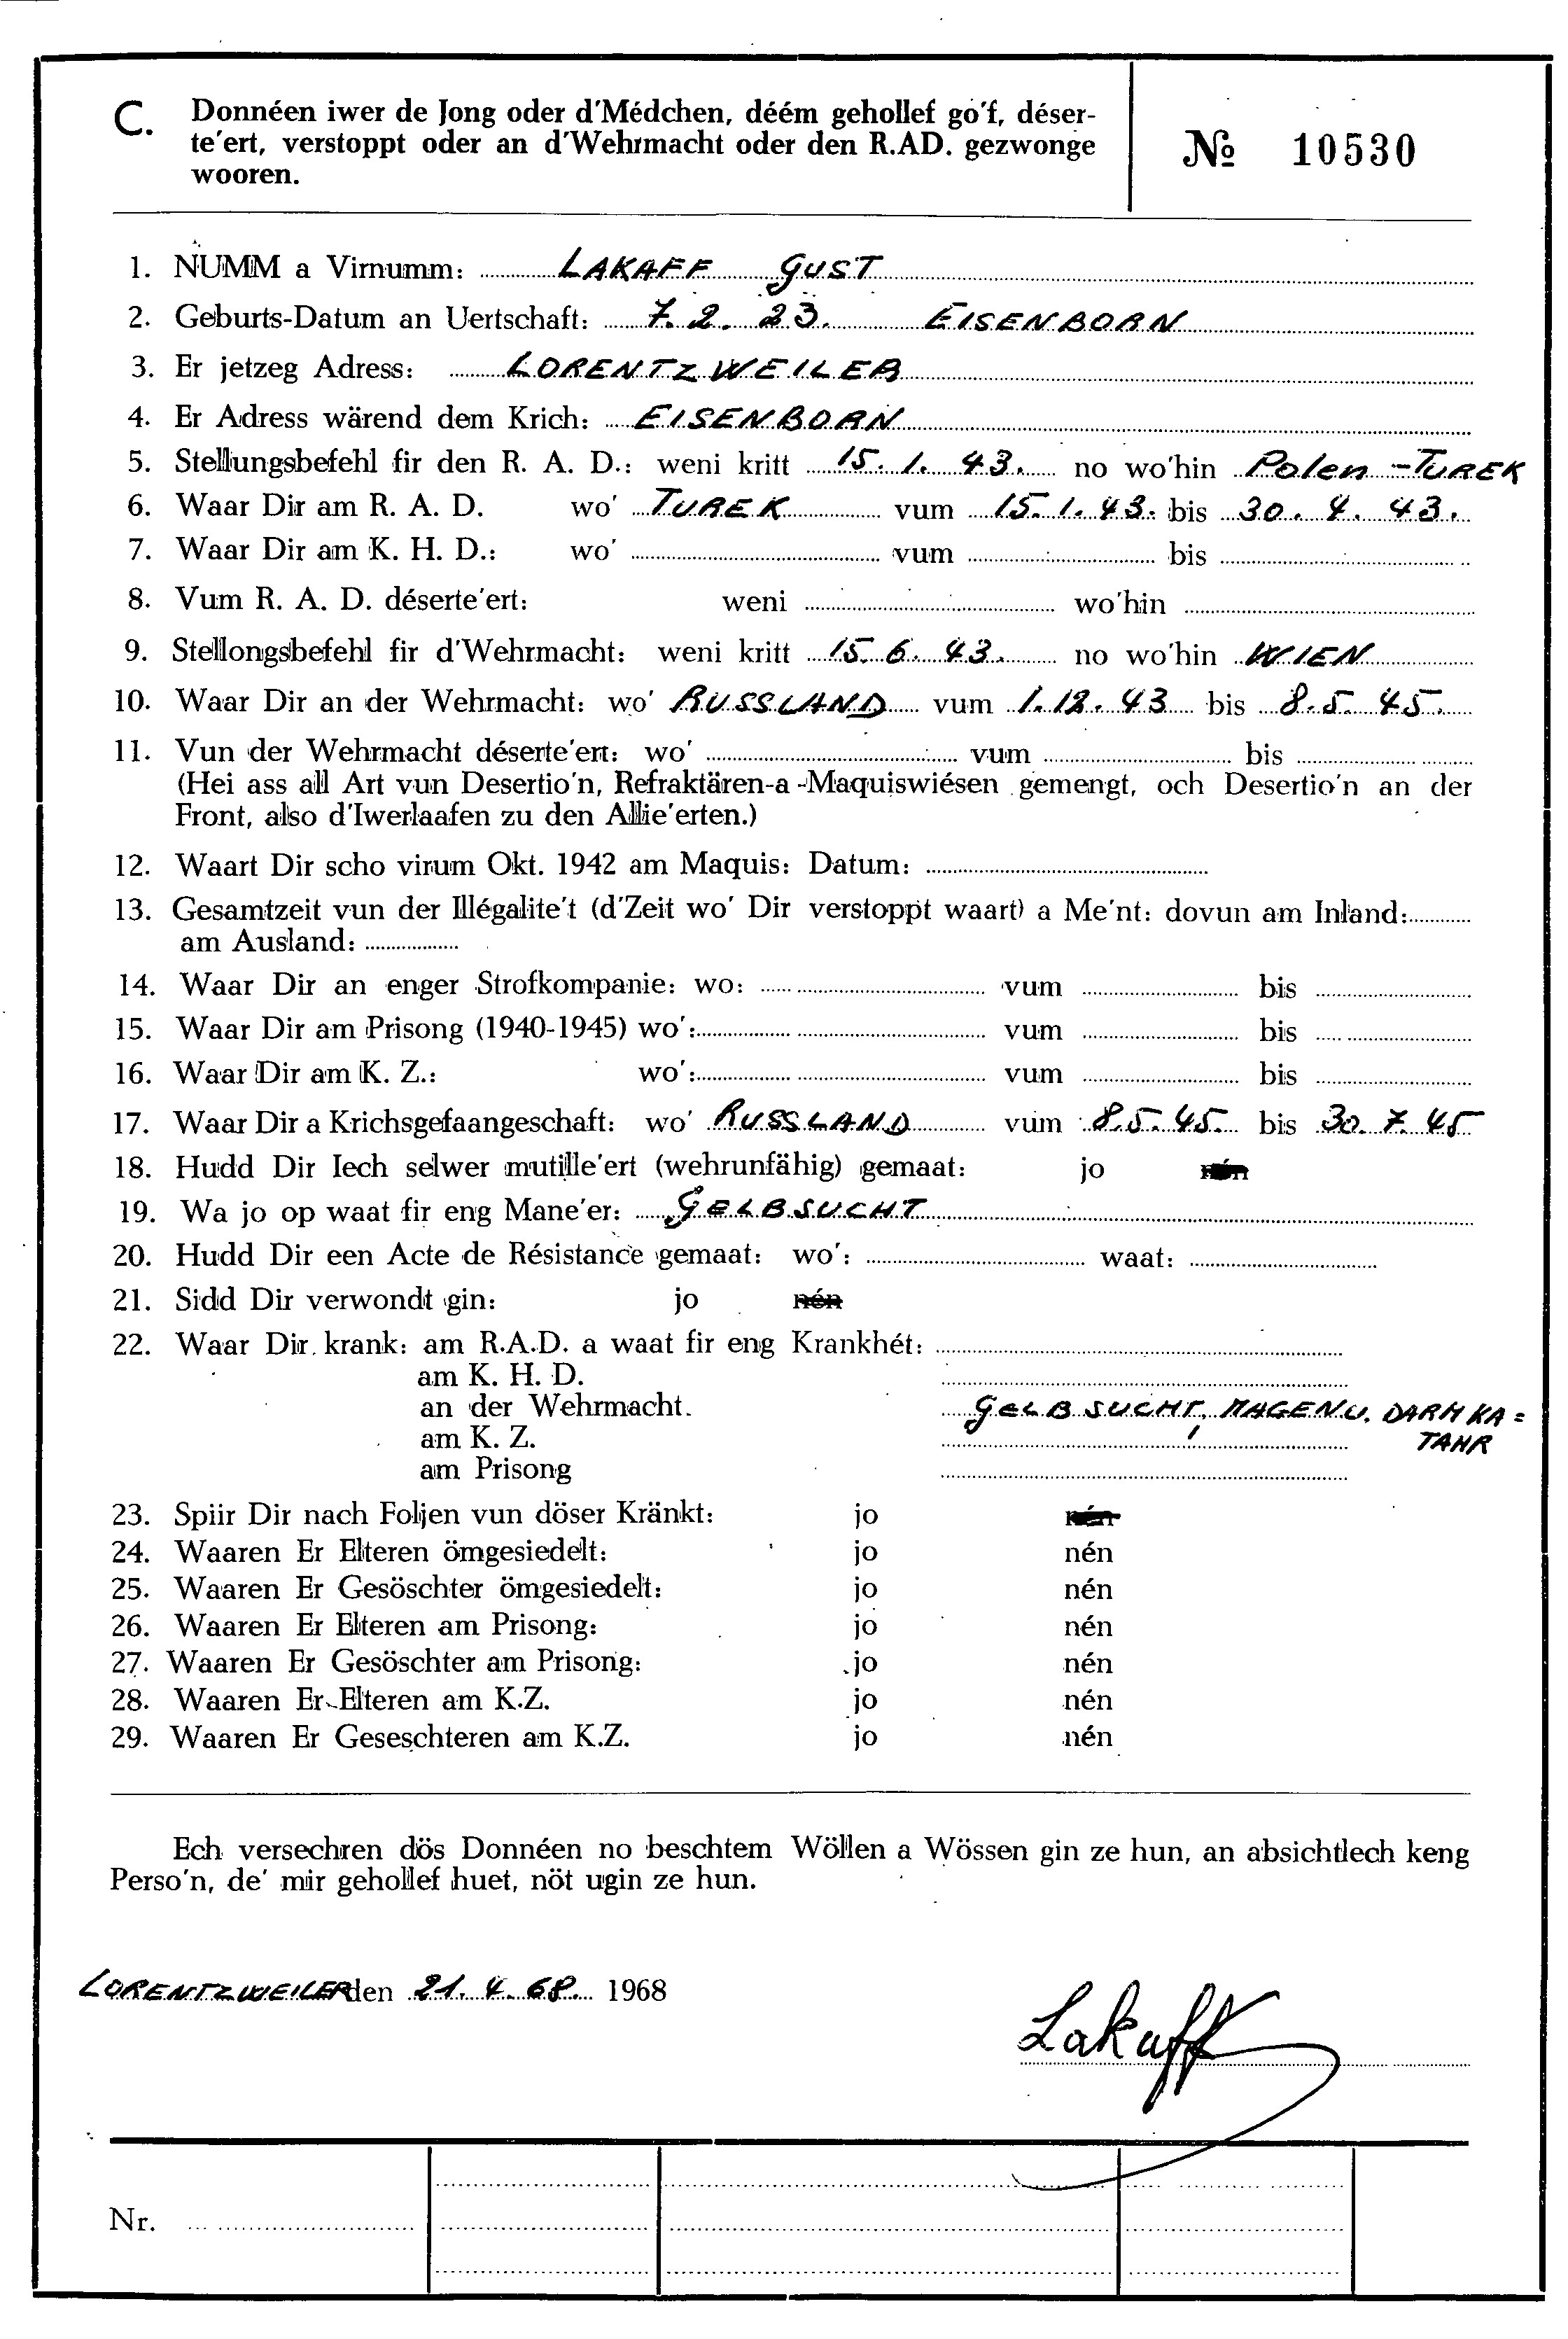 C. Donnéen iwer de Jong oder d'Médchen, déém gehollef go'f, déser-
te'ert, verstoppt oder an d'Wehrmacht oder den R.AD. gezwonge
wooren.
№ 10530
1. NUMM a Virnumm: LAKAFF GUST
2. Geburts-Datum an Uertschaft: 7. 2. 23. EISENBORN
3. Er jetzeg Adress: LORENTZWEILER
4. Er Adress wärend dem Krich: EISENBORN
5. Stellungsbefehl fir den R. A. D.: weni kritt 15. 1. 43. no wo'hin Polen - TUREK
6. Waar Dir am R. A. D. wo' TUREK vum 15. 1. 43. bis 30. 4. 43.
7. Waar Dir am K. H. D.: wo' vum bis
8. Vum R. A. D. déserte'ert: weni wo'hin
9. Stellongsbefehl fir d'Wehrmacht: weni kritt 15. 6. 43. no wo'hin WIEN
10. Waar Dir an der Wehrmacht: wo' RUSSLAND vum 1. 12. 43 bis 8. 5. 45.
11. Vun der Wehrmacht déserte'ert: wo' vum bis
(Hei ass all Art vun Desertio'n, Refraktären-a -Maquiswiésen gemengt, och Desertio'n an der
Front, also d'Iwerlaafen zu den Allie'erten.)
12. Waart Dir scho virum Okt. 1942 am Maquis: Datum:
13. Gesamtzeit vun der Illégalite't (d'Zeit wo' Dir verstoppt waart) a Me'nt: dovun am Inland:
am Ausland:
14. Waar Dir an enger Strofkompanie: wo: vum bis
15. Waar Dir am Prisong (1940-1945) wo': vum bis
16. Waar Dir am K. Z.: wo': vum bis
17. Waar Dir a Krichsgefaangeschaft: wo' RUSSLAND vum 8. 5. 45. bis 30. 7. 45
18. Hudd Dir Iech selwer mutille'ert (wehrunfähig) gemaat: jo nén
19. Wa jo op waat fir eng Mane'er: GELBSUCHT
20. Hudd Dir een Acte de Résistance gemaat: wo': waat:
21. Sidd Dir verwondt gin: jo nén
22. Waar Dir krank: am R.A.D. a waat fir eng Krankhét:
am K. H. D.
an der Wehrmacht. GELBSUCHT, MAGEN U. DARMKA=
am K. Z. TAHR
am Prisong
23. Spiir Dir nach Foljen vun döser Kränkt: jo nén
24. Waaren Er Elteren ömgesiedelt: jo nén
25. Waaren Er Gesöschter ömgesiedelt: jo nén
26. Waaren Er Elteren am Prisong: jo nén
27. Waaren Er Gesöschter am Prisong: jo nén
28. Waaren Er Elteren am K.Z. jo nén
29. Waaren Er Geseschteren am K.Z. jo nén
Ech versechren dös Donnéen no beschtem Wöllen a Wössen gin ze hun, an absichtlech keng
Perso'n, de' mir gehollef huet, nöt ugin ze hun.
LORENTZWEILER den 21. 4. 68. 1968
Lakaff
Nr.